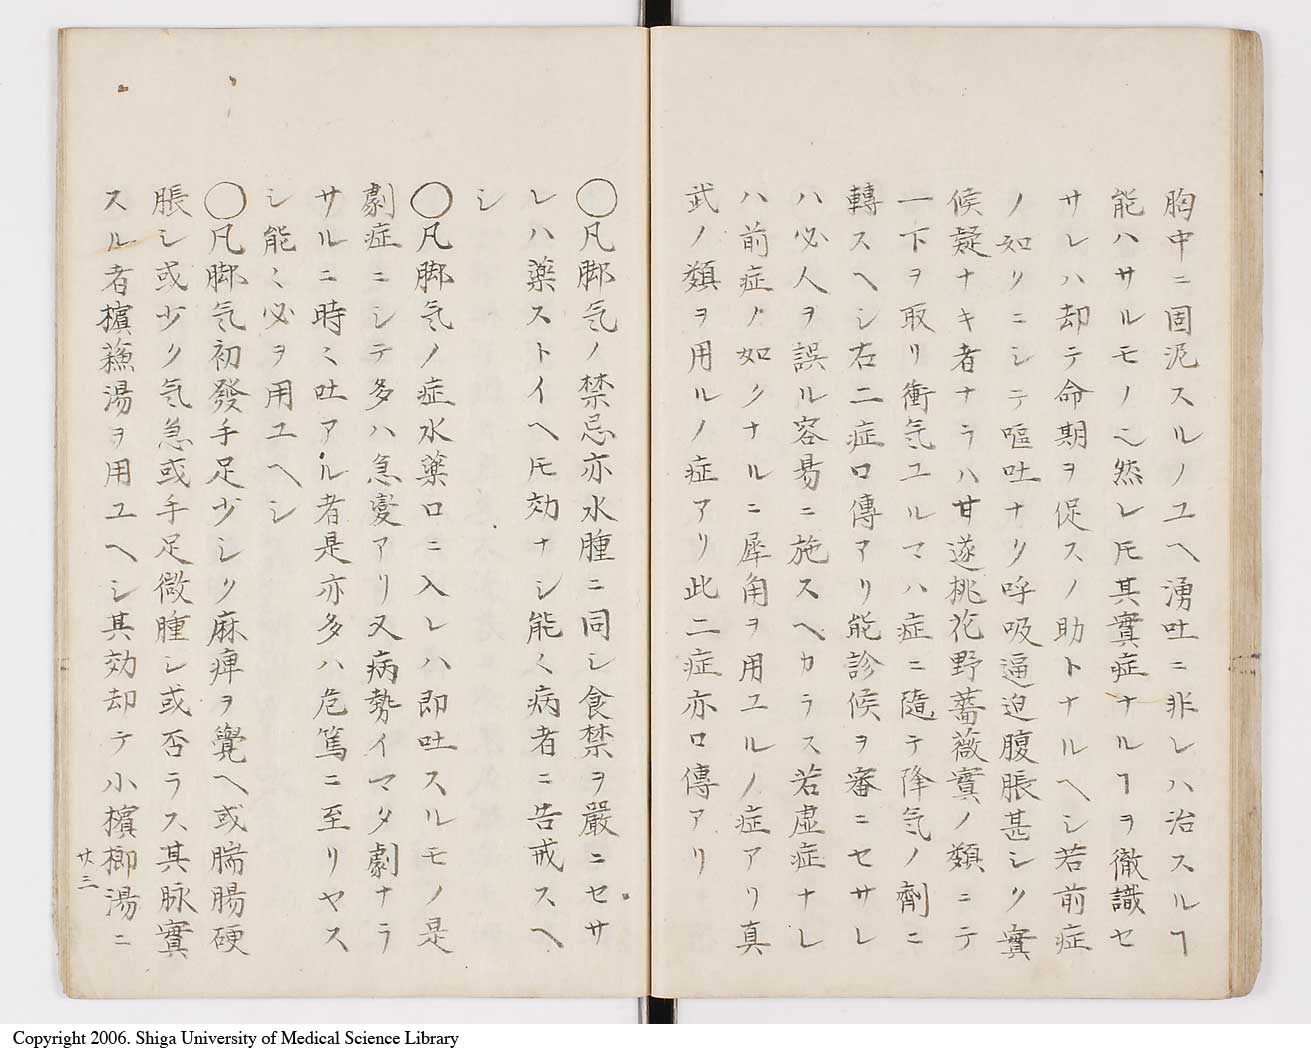 胸中ニ固泥スルノユヘ湧吐ニ非レハ治スルヿ
能ハサルモノ也然レ𪜈其實症ナルヿヲ徹識セ
サレハ却テ命期ヲ促スノ助トナルヘシ若前症
ノ如クニシテ嘔吐ナク呼吸逼迫腹脹甚シク實
候疑ナキ者ナラハ甘遂桃花野薔薇實ノ類ニテ
一下ヲ取リ衝気ユルマハ症ニ隨テ降気ノ劑ニ
轉スヘシ右二症口傳アリ能診候ヲ審ニセサレ
ハ必人ヲ誤ル容易ニ施スヘカラス若虚症ナレ
ハ前症ノ如クナルニ犀角ヲ用ユルノ症アリ真
武ノ類ヲ用ルノ症アリ此二症亦口傳アリ
○凡脚気ノ禁忌亦水腫ニ同シ食禁ヲ嚴ニセサ
レハ藥ストイヘ𪜈効ナシ能く病者ニ告戒スヘ
シ
○凡脚気ノ症水藥口ニ入レハ即吐スルモノ是
劇症ニシテ多ハ急變アリ又病勢イマタ劇ナラ
サルニ時〻吐アル者是亦多ハ危篤ニ至リヤス
シ能〻必ヲ用ユヘシ
○凡脚気初發手足少シク麻痺ヲ覺ヘ或腨腸硬
脹シ或少ク気急或手足微腫シ或否ラス其脉實
スル者檳蘓湯ヲ用ユヘシ其効却テ小檳榔湯ニ
廿三
Copyright 2006. Shiga University of Medical Science Library